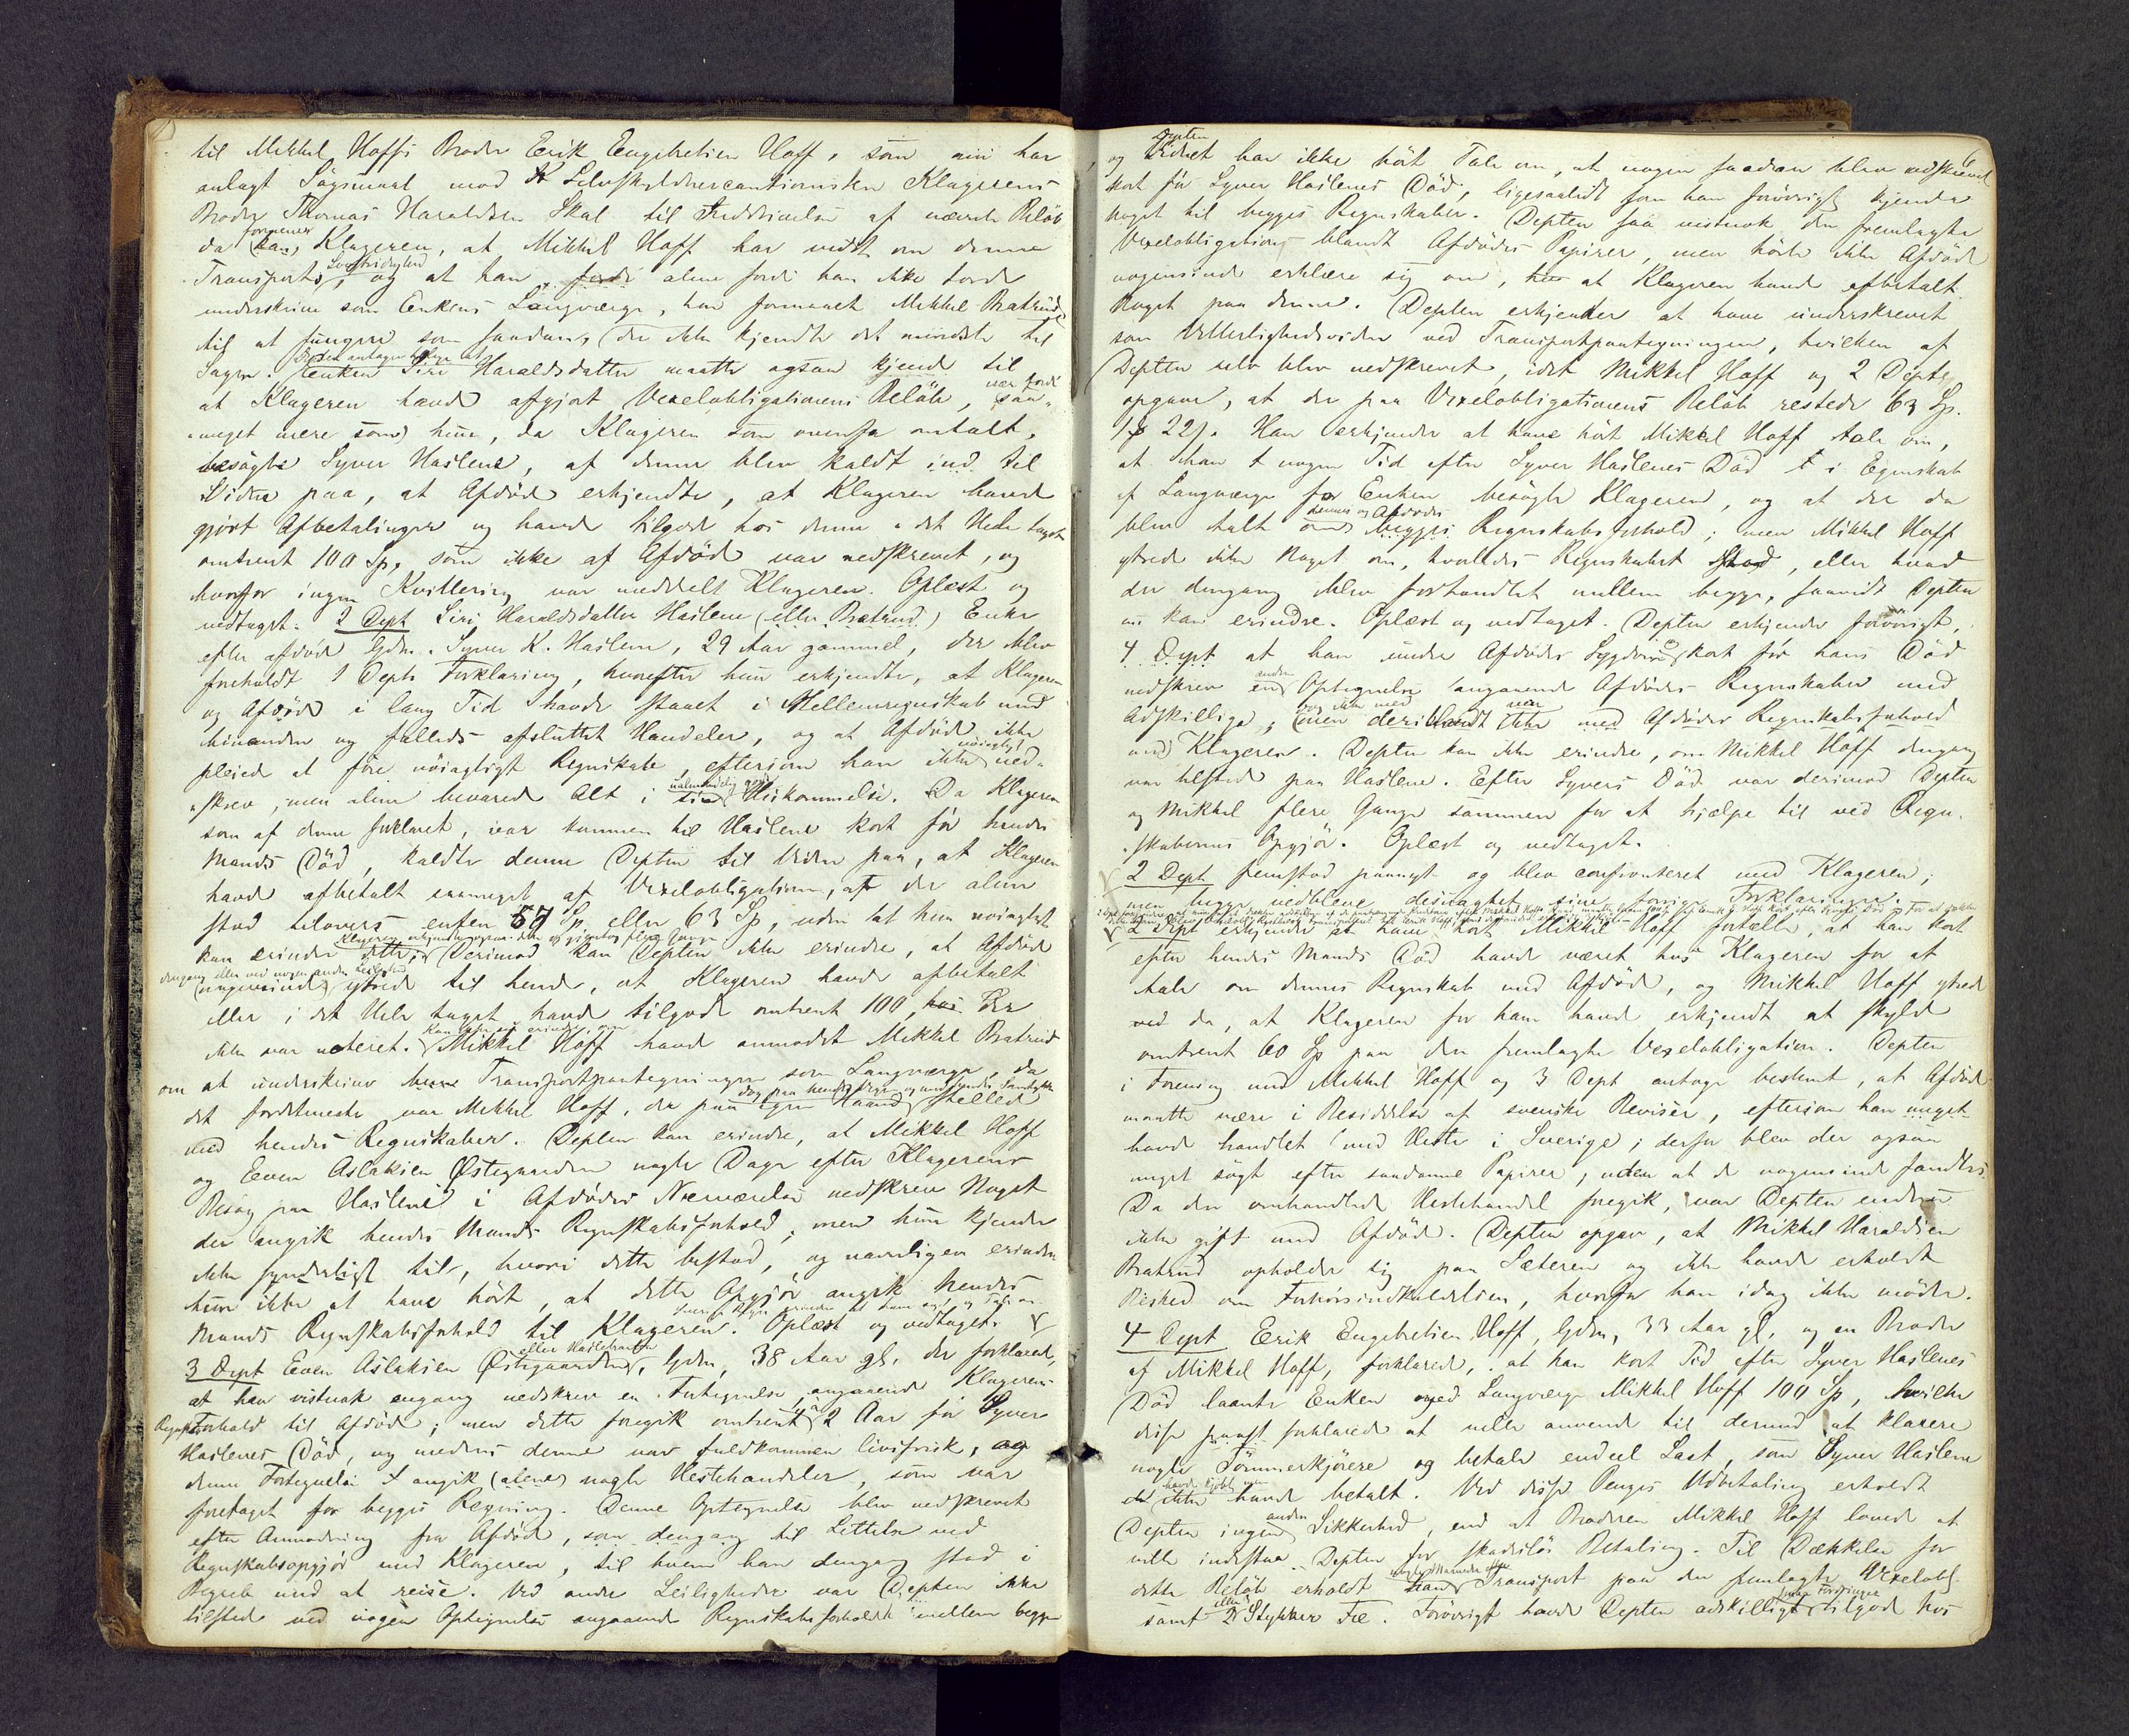 til Mikkel Hoffs Broder Erik Engebretsen Hoff, som nu har
anlagt Søgsmaal mod Selvskyldnercautionisten Klagerens
Broder Thomas Haraldsen Skal til Fredd af nævnte Beløb
formener
da Klageren, at Mikkel Hoff har vidst om denne
Transports og at han alene fordi han ikke torde
underskrive som Enkens Laugværge, har formaaet Mikkel Bratrud
til at fungere som saadan, der ikke kjendte det mindste til
Depten antager
Sagen. Enken Siri Haraldsdatter maatte ogsaa kjende til
at Klageren havde afgjort Vexelobligationens Beløb, saa
meget mere som hun, da Klageren som ovenfor omtalt,
besøgte Syver Haslene, af denne blev kaldt ind til
Vidne paa, at Afdøde erkjendte, at Klageren havde
gjort Afbetalinger og havde tilgode hos denne i det Hele taget
omtrent 100 Sp, som ikke af Afdøde var nedskrevet, og
hvorfor ingen Kvittering var meddelt Klageren. Oplæst og
vedtaget. 2 Dept Siri Haraldsdatter Haslene (eller Bratrud) Enke
efter afdøde Gdm. Syver K. Haslene, 29 Aar gammel, der blev
foreholdt 1 Depts Forklaring, hvorefter hun erkjendte, at Klageren
og Afdøde i lang Tid havde staaet i Mellemregnskab med
hinanden og fælleds afsluttet Handeler, og at Afdøde ikke
nøiagtigt
pleiede at føre nøiagtigt Regnskab, eftersom han ikke ned-
skrev, men alene bevarede Alt i sin Hukommelse. Da Klageren
som af denne forklaret, var kommen til Haslene kort før hendes
Mands Død, kaldte denne Depten til Vidne paa, at Klageren
havde afbetalt saameget af Vexelobligationen, at der alene
stod tilovers enten 57 Sp eller 63 Sp, uden at hun nøiagtigt
kan erindre dette. Derimod kan Depten ikke erindre, at Afdøde
dengang eller ved nogen anden Leilighed
nogensinde ytrede til hende, at Klageren havde afbetalt
eller i det Hele taget havde tilgode omtrent 100, der
kan ikke erindre, om
ikke var noteret. Mikkel Hoff havde anmodet Mikkel Bratrud
om at underskrive Transportpaategningen som Laugværge, da
det fordetmeste var Mikkel Hoff, der paa egen Haand stellede
med hendes Regnskaber. Depten kan erindre, at Mikkel Hoff
og Even Aslaksen Østegaarden nogle Dage efter Klagerens
Besøg paa Haslene i Afdødes Nærværelse nedskrev Noget
der angik hendes Mands Regnskabsforhold, men hun kjender
ikke synderligt til, hvori dette bestod, og navnligen erindrer
hun ikke at have hørt, at dette Opgjør angik hendes
Mands Regnskabsforhold til Klageren. Oplæst og vedtaget.
3 Dept Even Aslaksen Østegaarden, Gdm, 38 Aar gl. der forklarede,
at han vistnok engang nedskrev en Fortegnelse angaaende Klagerens
Forhold til Afdøde; men dette foregik omtrent 2 Aar før Syver
Haslenes Død, og medens denne var fuldkommen livsfrisk, og
denne Fortegnelse angik (alene) nogle Hestehandeler, som var
foretaget for begges Regning. Denne Optegnelse blev nedskrevet
efter Anmodning fra Afdøde, som dengang til Lettelse ved
Regnskabsopgjør med Klageren, til hvem han dengang stod i
Begreb med at reise. Ved andre Leiligheder var Depten ikke
tilstede ved nogen Optegnelse angaaende Regnskabsforholdet mellem begge
Depten
og har ikke hørt Tale om, at nogen saadan blev nedskrevet
kort før Syver Haslenes Død, ligesaalidt som han forøvrigt kjender
noget til begges Regnskaber. Depten saa vistnok den fremlagte
Vexelobligation blandt Afdødes Papirer, men hørte ikke Afdøde
nogensinde erklære sig om, at Klageren havde afbetalt
Noget paa denne. Depten erkjender at have underskrevet
som Vitterlighedsvidne ved Transportpaategningen, hvilken af
Depten selv blev nedskrevet, idet Mikkel Hoff og 2 Dept
opgave, at der paa Vexelobligationens Beløb restede 63 Sp.
1 22 s. Han erkjender at have hørt Mikkel Hoff tale om,
at han nogen Tid efter Syver Haslenes Død i Egenskab
af Laugværge for Enken besøgte Klageren, og at der da
dennes og Afdødes
blev talt om begges Regnskabsforhold; men Mikkel Hoff
ytrede ikke Noget om, hvorledes Regnskabet stod, eller hvad
der dengang blev forhandlet mellem begge, saavidt Depten
nu kan erindre. Oplæst og vedtaget. Depten erkjender forøvrigt,
4 Dept at han under Afdødes Sygdom kort før hans Død
anden
nedskrev en Optegnelse angaaende Afdødes Regnskaber med
Adskillige, men deriblandt ikke med Afdødes Regnskabsforhold
med Klageren. Depten kan ikke erindre, om Mikkel Hoff dengang
var tilstede paa Haslene. Efter Syvers Død var derimod Depten
og Mikkel flere Gange sammen for at hjælpe til ved Regn-
skabernes Opgjør. Oplæst og vedtaget.
2 Dept fremstod paanyt og blev confronteret med Klageren;
men begge vedbleve desuagtet sine forrige Forklaringer.
2 Dept erkjender at have hørt Mikkel Hoff fortælle, at han kort
efter hendes Mands Død havde været hos Klageren for at
tale om dennes Regnskab med Afdøde, og Mikkel Hoff ytrede
ved da, at Klageren for ham havde erkjendt at skylde
omtrent 60 Sp paa den fremlagte Vexelobligation. Depten
i Forening med Mikkel Hoff og 3 Dept antage bestemt, at Afdøde
maatte være i Besiddelse af svenske Reviser, eftersom han meget
havde handlet med Heste i Sverige; derfor blev der ogsaa
meget søgt efter saadanne Papirer, uden at de nogensinde fandtes.
Da den omhandlede Hestehandel foregik, var Depten endnu
ikke gift med Afdøde. Depten opgav, at Mikkel Haraldsen
Bratrud opholder sig paa Sæteren og ikke havde erholdt
Besked om Forhørsindkaldelsen, hvorfor han idag ikke møder.
4 Dept Erik Engebretsen Hoff, Gdm, 33 Aar gl. og en Broder
af Mikkel Hoff, forklarede, at han kort Tid efter Syver Haslenes
Død laante Enken med Laugværge Mikkel Hoff 100 Sp, hvilke
disse forklarede at ville anvende til dermed at klarere
nogle Tømmerkjørere og betale endeel Last, som Syver Haslene
havde kjøbt men
ikke havde betalt. Ved disse Penges Udbetaling erholdt
anden
Depten ingen Sikkerhed, end at Broderen Mikkel Hoff lovede at
ville indestaa Depten for skadesløs Betaling. Til Dækkelse for
nogle Maaneder efter
dette Beløb erholdt han Transport paa den fremlagte Vexelobl
samt 2 Stykker Fæ. Forøvrigt havde Depten adskilligt tilgode hos